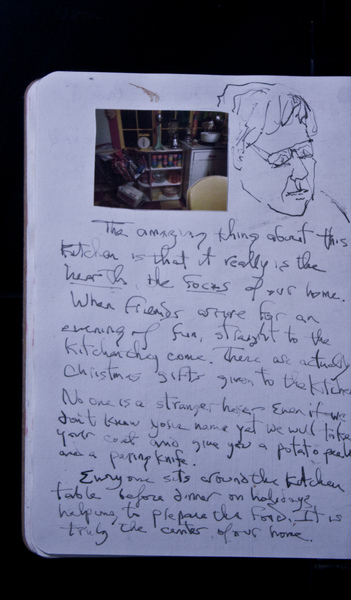 The amazing thing about this
kitchen is that it really is the
hearth, the focus of our home.
When friends arrive for an
evening of fun, straight to the
kitchen they come. There are actually
Christmas gifts given to the kitchen
No one is a stranger here. Even if we
don't know your name yet we will take
your coat and give you a potato peele
and a paring knife.
Everyone sits around the kitchen
table before dinner on holidays,
helping to prepare the food. It is
truly the center of our home.